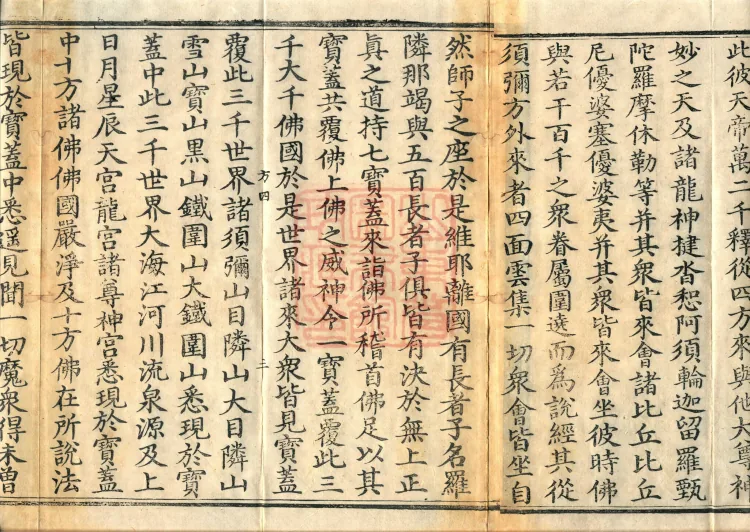 此彼天帝萬二千釋從四方來與他大尊神
妙之天及諸龍神揵沓惒阿須輪迦留羅甄
陀羅摩休勒等并其衆皆來會諸比丘比丘
尼優婆塞優婆夷并其衆皆來會坐彼時佛
與若干百千之衆眷屬圍遶而爲說經其從
須彌方外來者四面雲集一切衆會皆坐自
然師子之座於是維耶離國有長者子名羅
隣那竭與五百長者子俱皆有決於無上正
眞之道持七寶蓋來詣佛所稽首佛足以其
寶蓋共覆佛上佛之威神令一寶蓋覆此三
千大千佛國於是世界諸來大衆皆見寶蓋
方四 三
覆此三千世界諸須彌山目隣山大目隣山
雪山寶山黒山鐵圍山大鐵圍山悉現於寶
蓋中此三千世界大海江河川流泉源及上
日月星辰天宮龍宮諸尊神宮悉現於寶蓋
中十方諸佛佛國嚴淨及十方佛在所說法
皆現於寶蓋中悉遥見聞一切魔衆得未曾